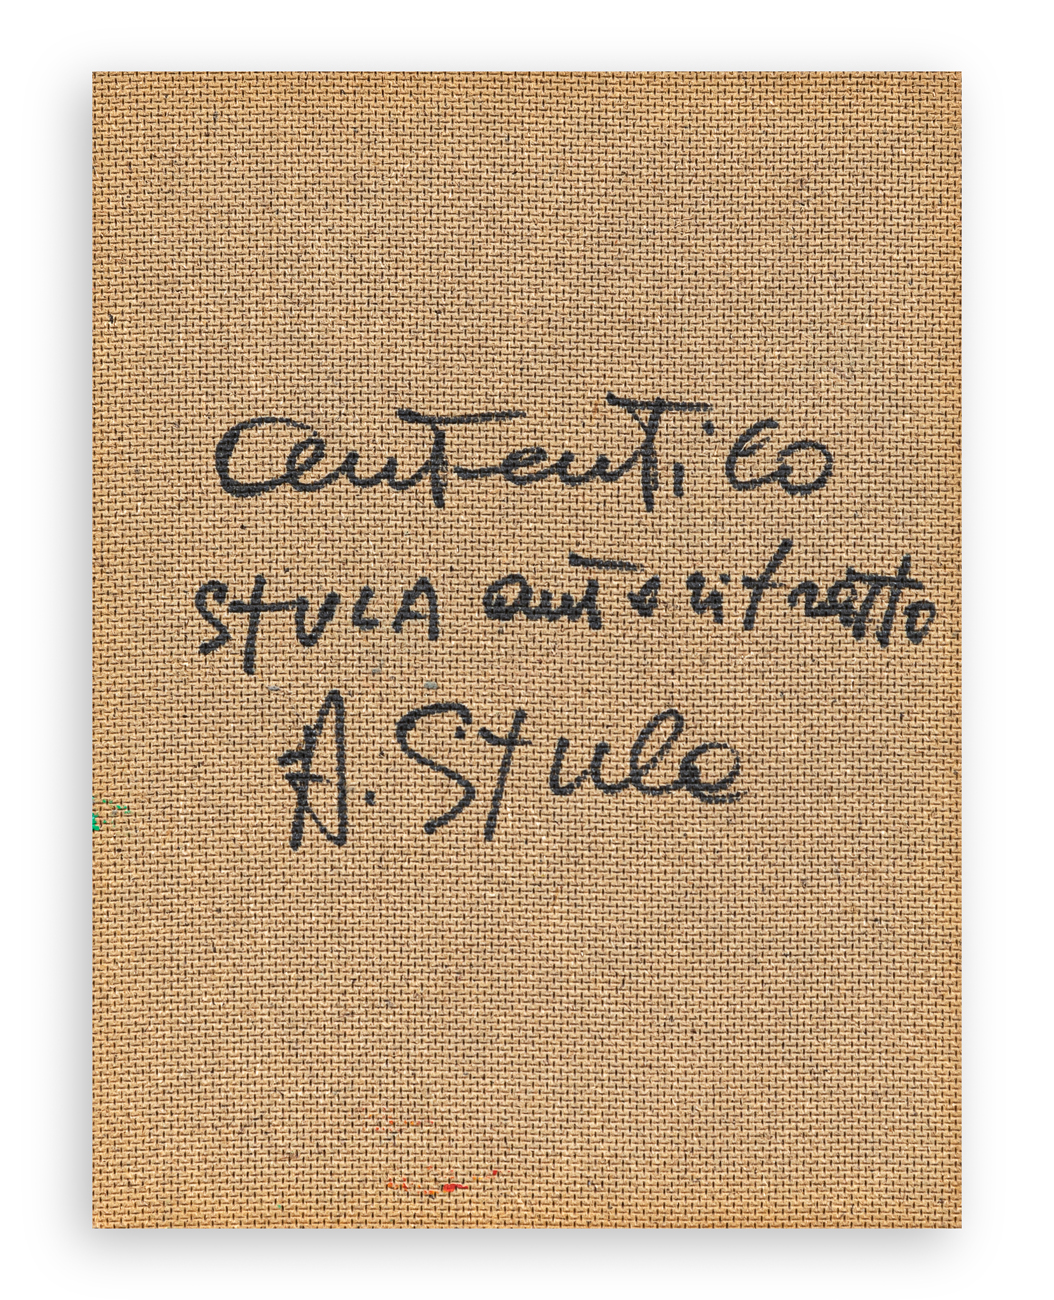 autentico
STULA autoritratto
A. Stula